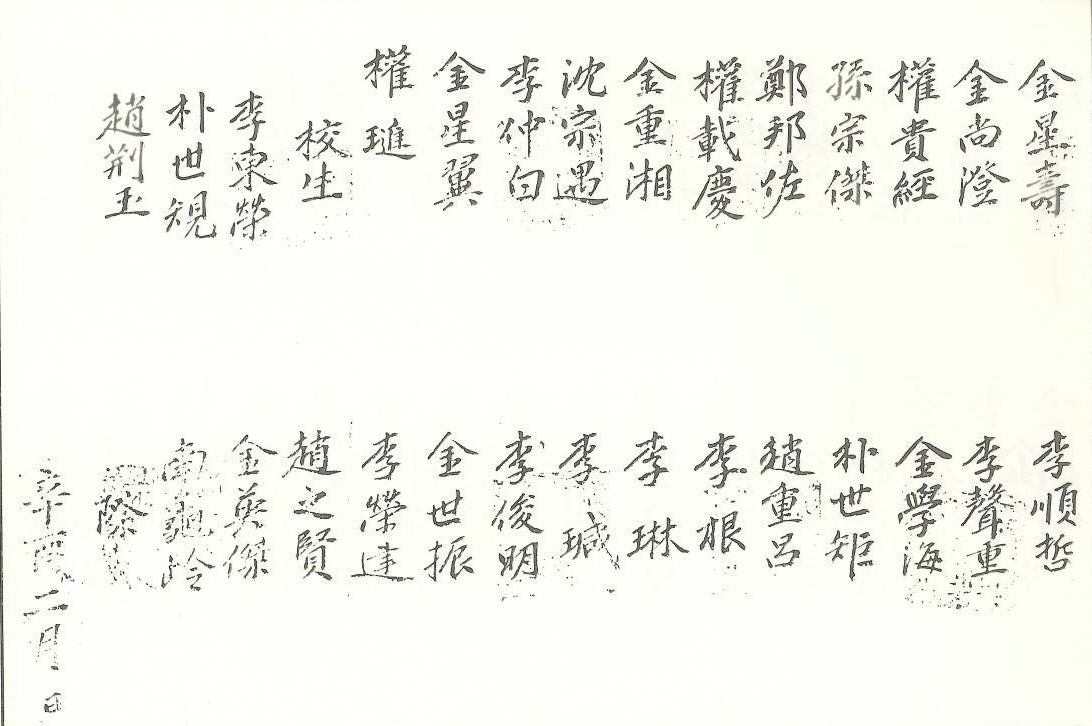 金星壽
金尚澄
權貴經
孫宗傑
鄭邦佐
權載慶
金重湘
沈宗遇
李仲白
金星翼
權璡
校生
李東榮
朴世規
趙荆玉
李順哲
李聲重
金學海
朴世矩
趙重呂
李根
李琳
李瑊
李俊明
金世振
李榮達
趙之賢
金英傑
南
際
辛酉二月日